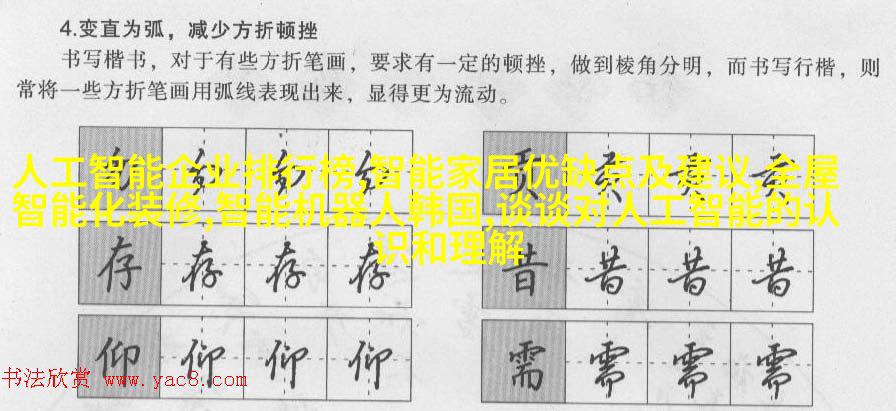 4.变直为弧，减少方折顿挫
书写楷书，对于有些方折笔画，要求有一定的顿挫，做到棱角分明，而书写行楷，则
常将一些方折笔画用弧线表现出来，显得更为流动。
人工智能企业排行榜,智能家居优缺点及建议,全屋
智能化装修,智能机器人韩国,谈谈对人工智能的认
识和理解
存 存 存 存
昔 昔 昔 昔
仰 仰 仰 仰
需 需 需 需
书法欣赏 www.yac8.com